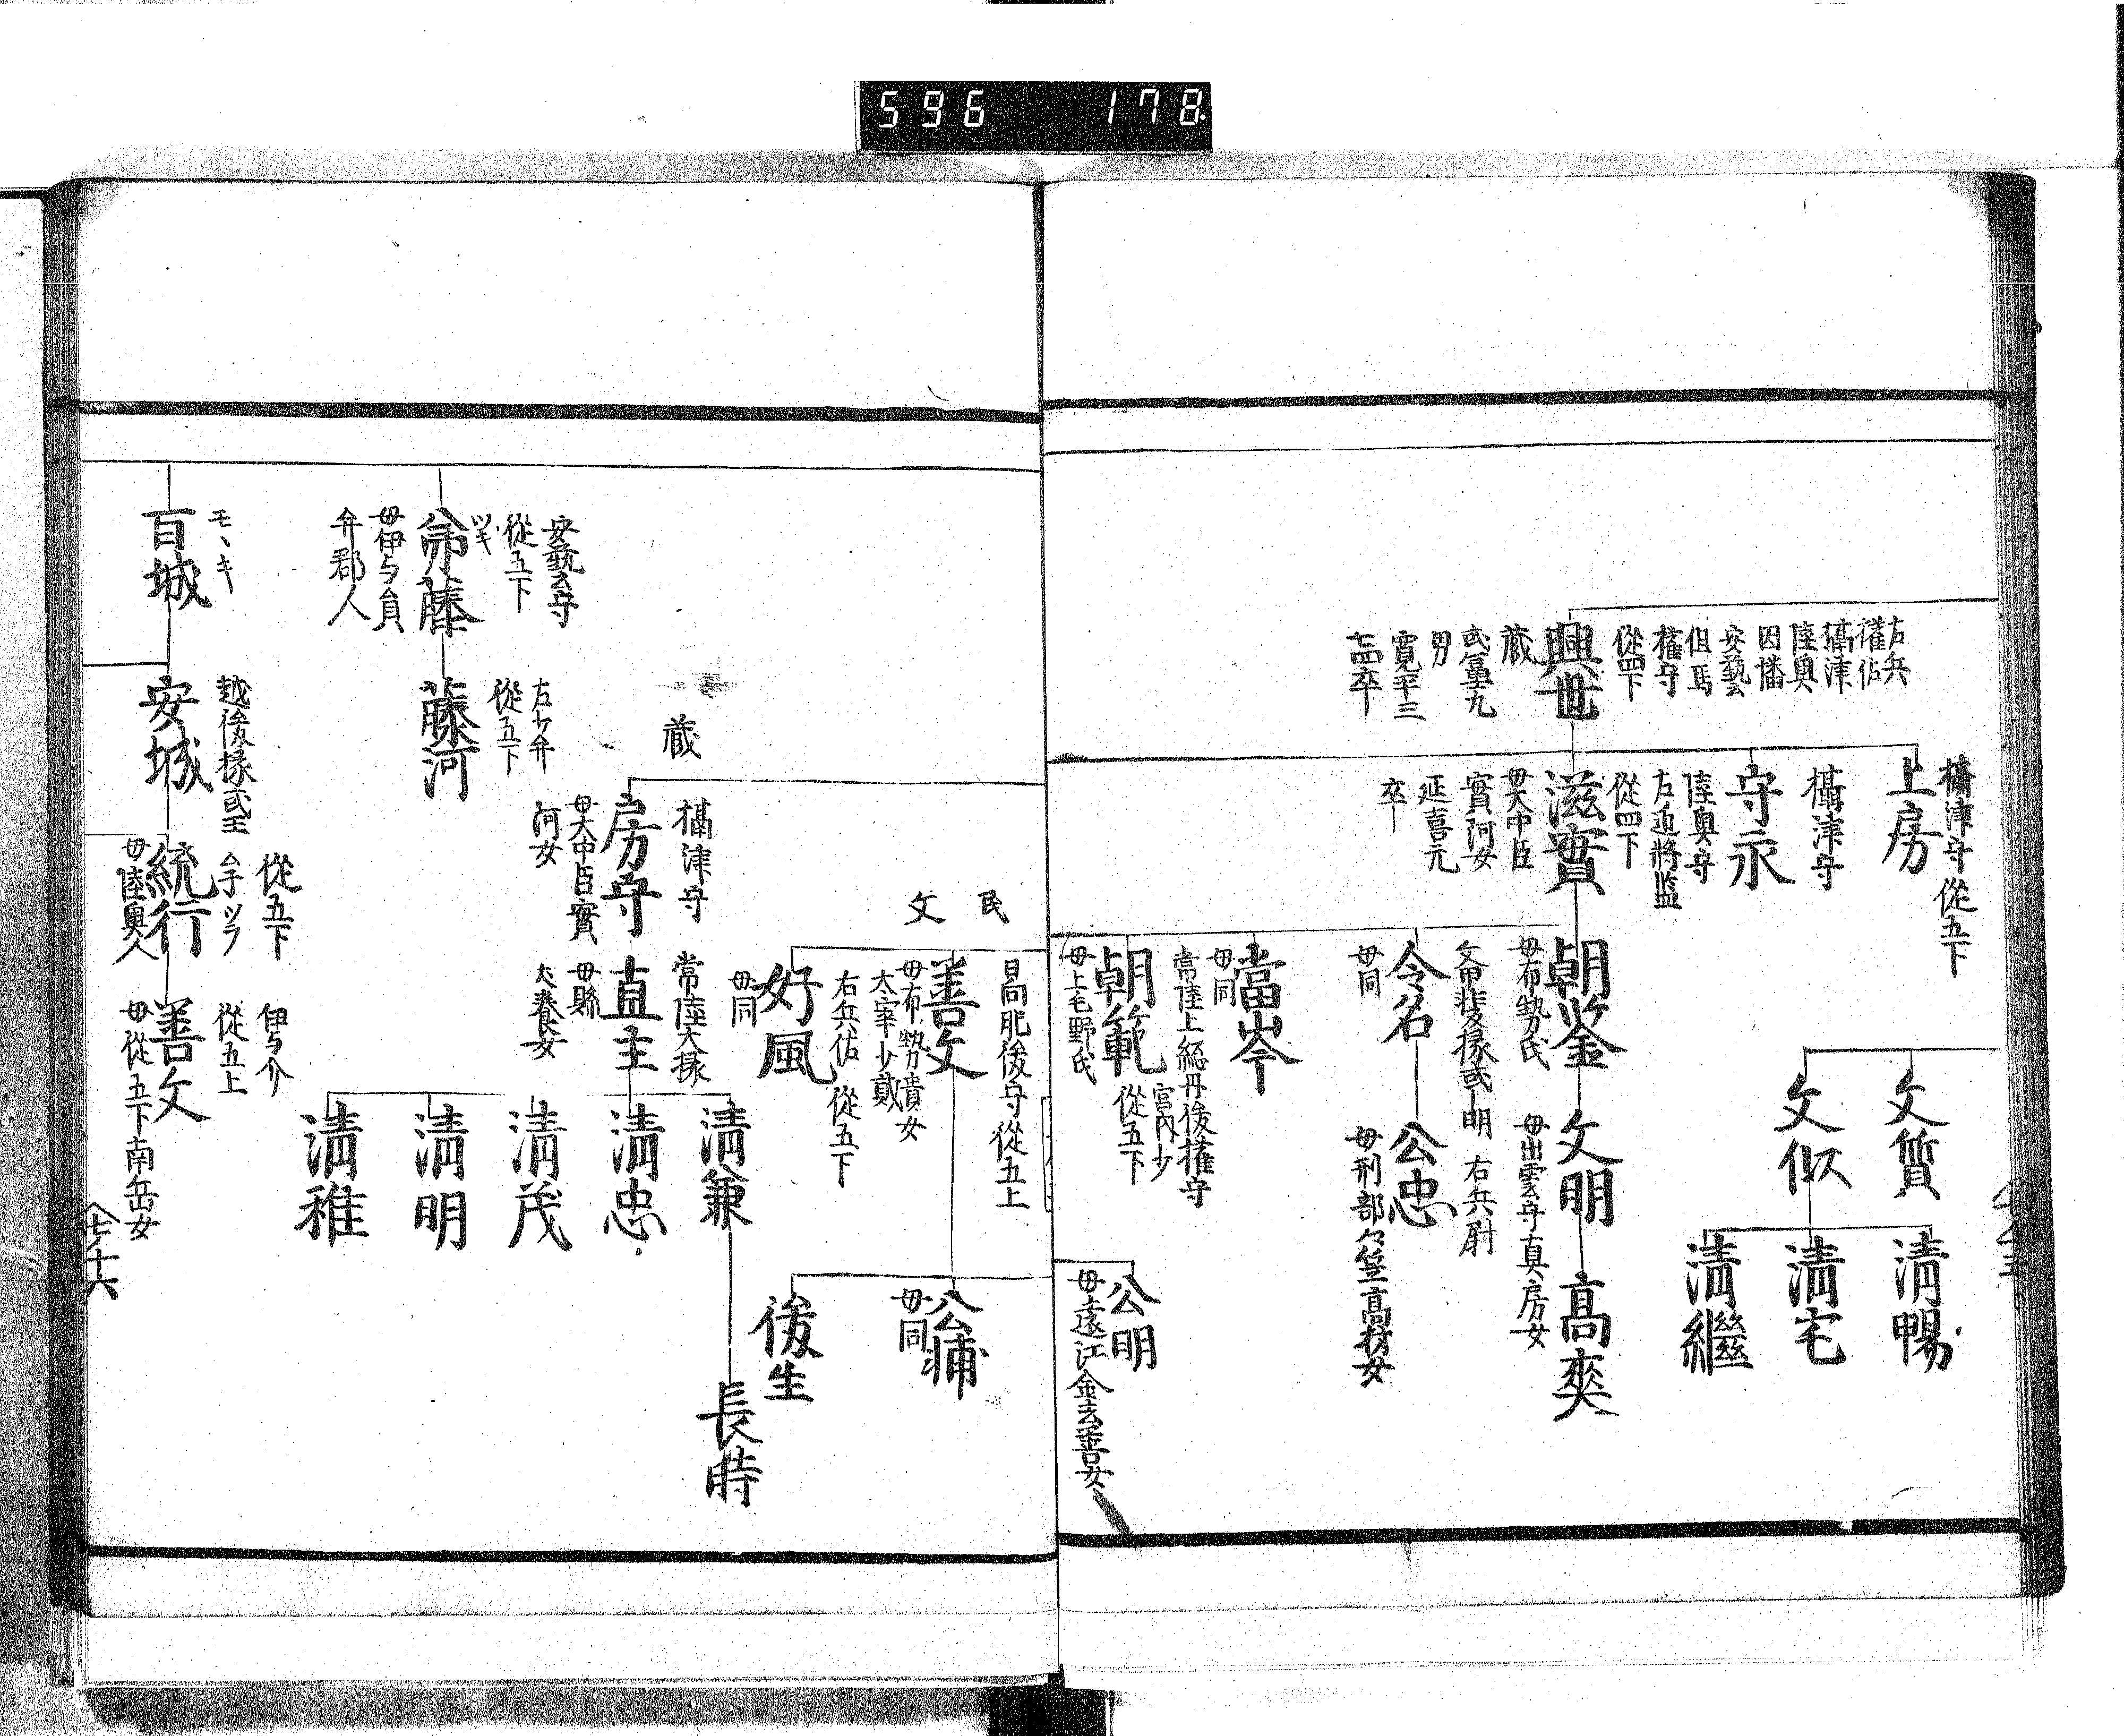 596 178
左兵
權佐
攝津
陸奥
因播
安藝
但馬
權守
從四下
興世
蔵
寛平三
卒
攝津守從五下
上房
攝津守
守永
陸奥守
左近將監
從四下
滋實
母大中臣
實阿女
延喜元
卒
文質
文似
清暢
清宅
清繼
朝鑒
母布勢氏
文明
母出雲守真房女
高奕
右兵尉
令名
母同
公忠
母刑部々笠高材女
當岑
母同
常陸上総丹後權守
宮内少
從五下
朝範
母上毛野氏
公明
母遠江介玄善女
民
文
日向肥後守從五上
善文
母布勢貴女
太宰少貳
右兵佐 從五下
好風
母同
公輔
母同
後生
蔵
攝津守
房守
母大中臣實
阿女
常陸大掾
直主
母縣
犬養女
清兼
清忠
清茂
清明
清稚
長時
安藝守
從五下
藤
母伊与員
弁郡人
左少弁
從五下
藤河
モヽキ
百城
越後掾或王
安城
從五下
ムネツラ
統行
母陸奥人
伊与介
從五上
善文
母從五下南岳女
七ノ十六